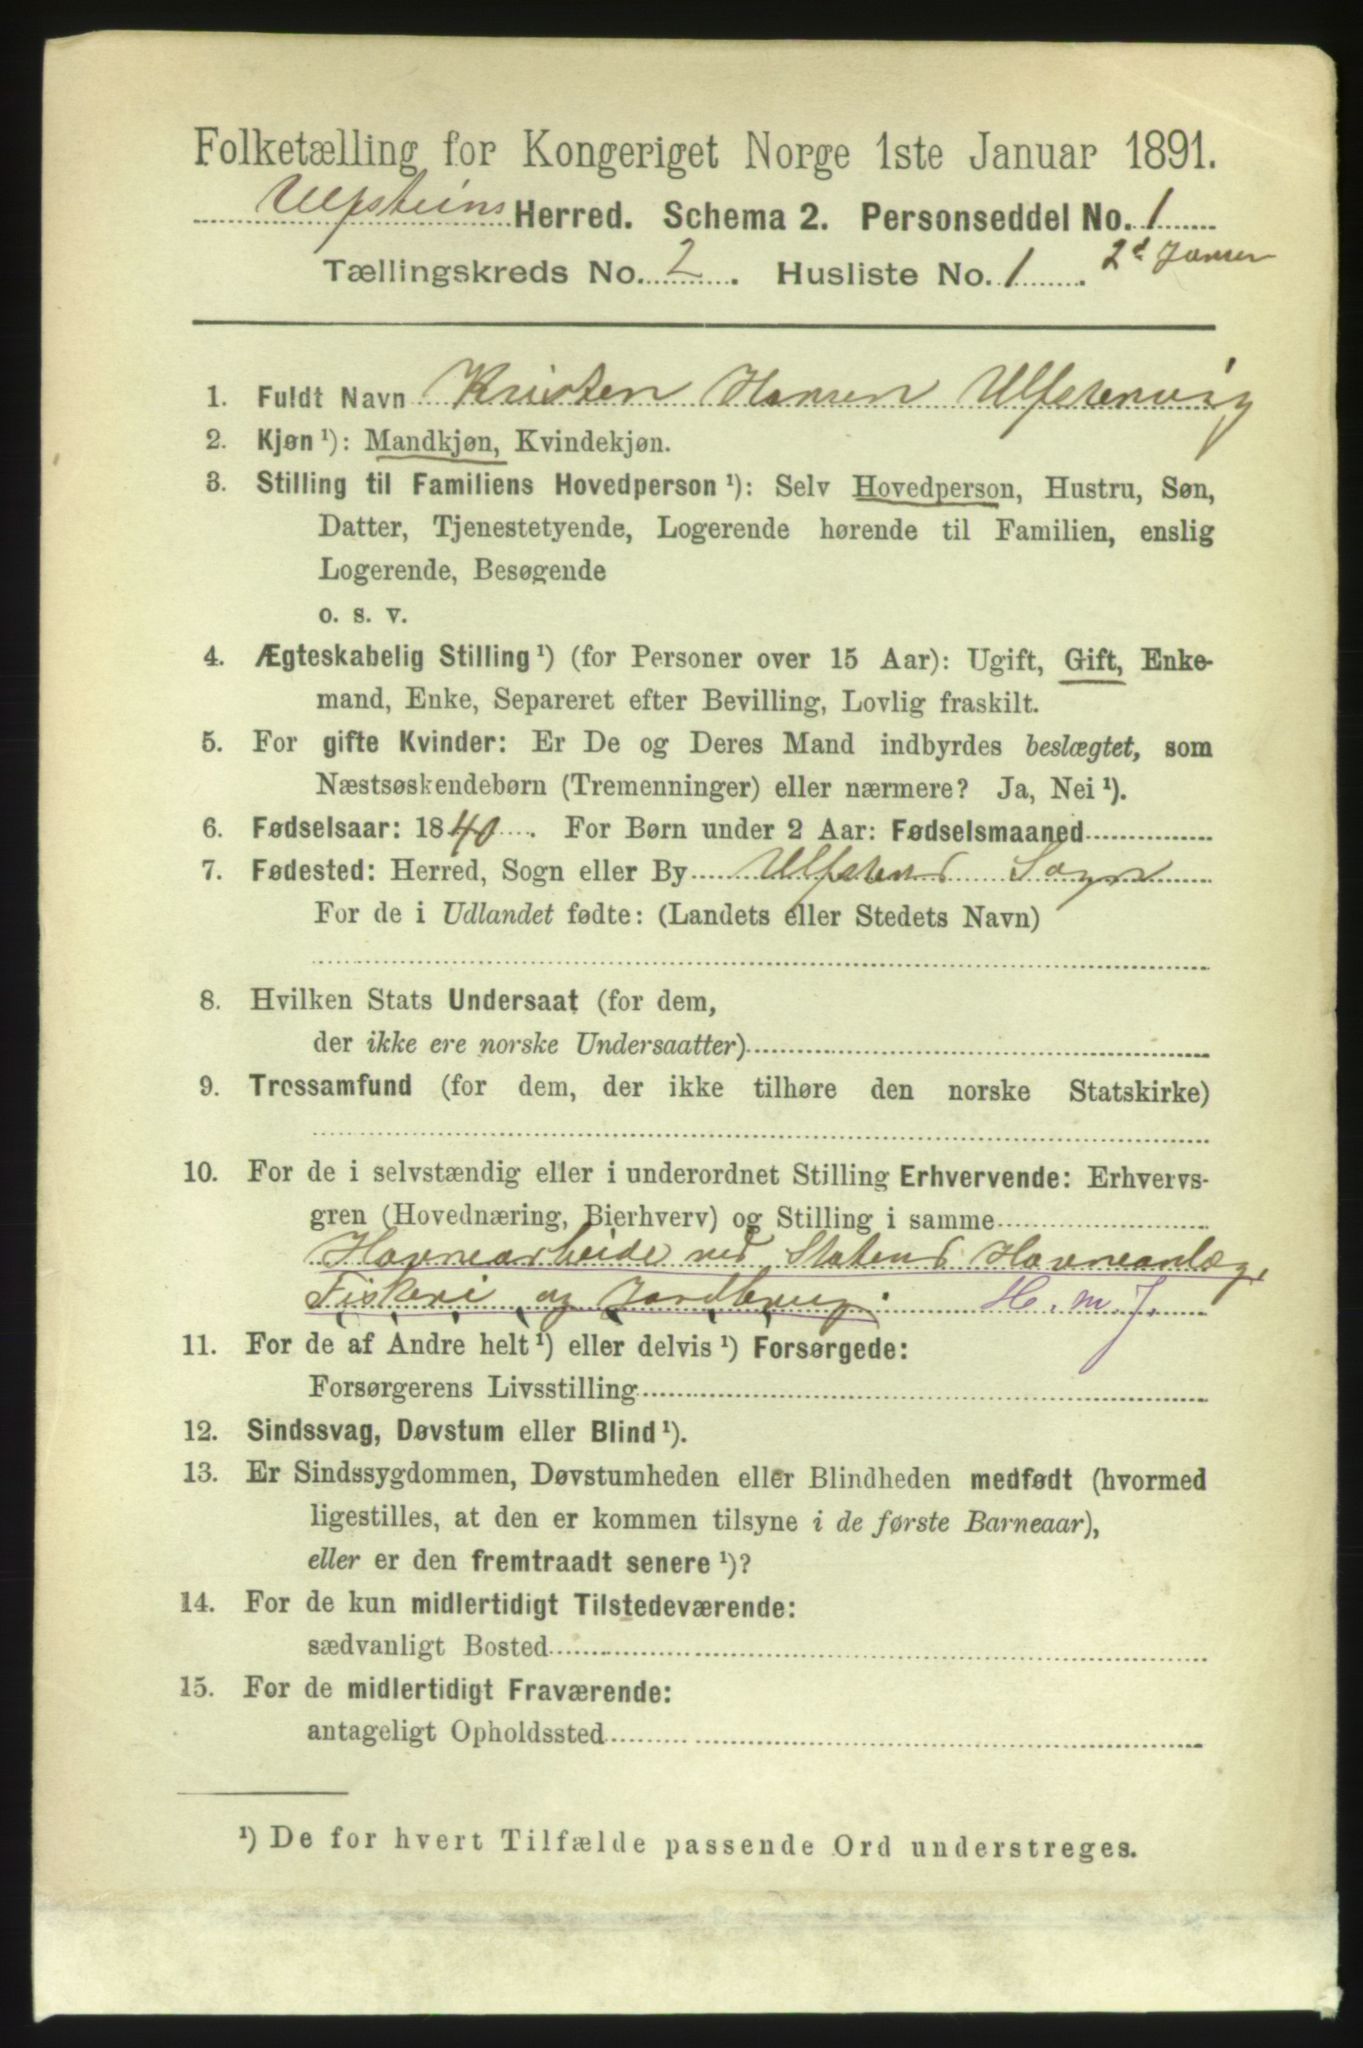 Folketælling for Kongeriget Norge 1ste Januar 1891.
Ulfsteins Herred. Schema 2. Personseddel No. 1
Tællingskreds No. 2. Husliste No. 1. 2d Januar
1. Fuldt Navn Kristen Hansen Ulfstenvig
2. Kjøn ¹): Mandkjøn, Kvindekjøn.
3. Stilling til Familiens Hovedperson ¹): Selv Hovedperson, Hustru, Søn,
Datter, Tjenestetyende, Logerende hørende til Familien, enslig
Logerende, Besøgende
o. s. v.
4. Ægteskabelig Stilling ¹) (for Personer over 15 Aar): Ugift, Gift, Enke-
mand, Enke, Separeret efter Bevilling, Lovlig fraskilt.
5. For gifte Kvinder: Er De og Deres Mand indbyrdes beslægtet, som
Næstsøskendebørn (Tremenninger) eller nærmere? Ja, Nei ¹).
6. Fødselsaar: 1840. For Børn under 2 Aar: Fødselsmaaned
7. Fødested: Herred, Sogn eller By Ulfstens Sogn
For de i Udlandet fødte: (Landets eller Stedets Navn)
8. Hvilken Stats Undersaat (for dem,
der ikke ere norske Undersaatter)
9. Trossamfund (for dem, der ikke tilhøre den norske Statskirke)
10. For de i selvstændig eller i underordnet Stilling Erhvervende: Erhvervs-
gren (Hovednæring, Bierhverv) og Stilling i samme
Havnearbeide ved Statens Havneanlæg,
Fiskeri og Jordbrug. H. m. J.
11. For de af Andre helt ¹) eller delvis ¹) Forsørgede:
Forsørgerens Livsstilling
12. Sindssvag, Døvstum eller Blind ¹).
13. Er Sindssygdommen, Døvstumheden eller Blindheden medfødt (hvormed
ligestilles, at den er kommen tilsyne i de første Barneaar),
eller er den fremtraadt senere ¹)?
14. For de kun midlertidigt Tilstedeværende:
sædvanligt Bosted
15. For de midlertidigt Fraværende:
antageligt Opholdssted
¹) De for hvert Tilfælde passende Ord understreges.